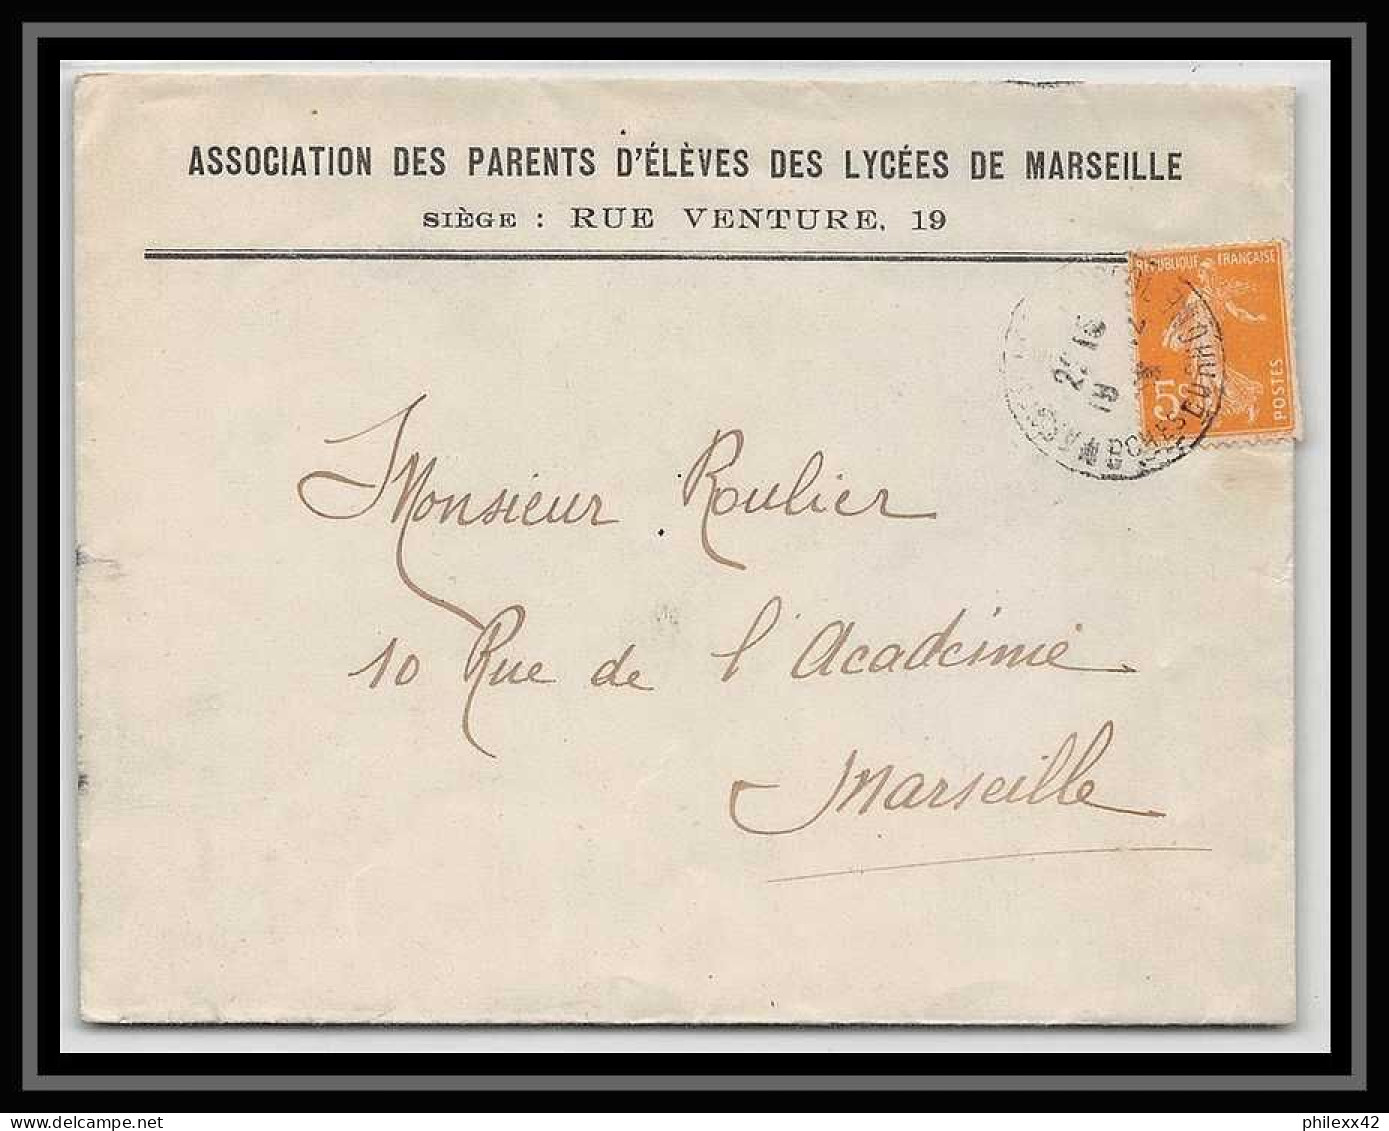 ASSOCIATION DES PARENTS D'ÉLÈVES DES LYCÉES DE MARSEILLE
SIÈGE : RUE VENTURE, 19
REPUBLIQUE FRANÇAISE
5c
POSTES
DU RHONE
Monsieur Roulier
10 Rue de l'Académie
Marseille
philexx42